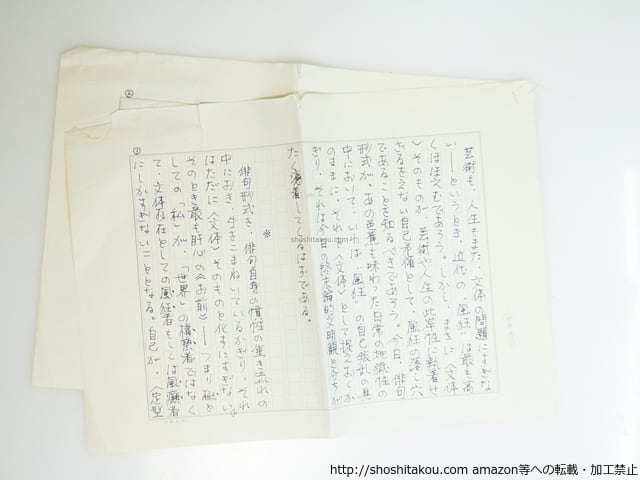 芸術も、人生もまた、文体の問題にすぎな
い——というとき、近代の〝風狂〟は最も高
くほほえむであろう。しかし、まさに〈文体
〉そのものが、芸術や人生の此岸性に執着せ
ざるをえない自己矛盾として、風狂の落し穴
であることを知るべきであろう。今日、俳句
形式が、あの芭蕉も味わった日常の地獄性の
中において、いわば〝風狂〟の自己撹乱の具
のままに、それを〈文体〉として捉えおくか
ぎり、それは今日の終末論的文明観とふかが
たく癒着してくるはずである。
※
俳句形式を、俳句自身の慣性の集き流れの
中におき、手をこまねいているかぎり、それ
はただに〈文体〉そのものと化すにすぎない。
そのとき最も肝心の〈お前〉——つまり極と
しての「私」が、「世界」の構築者ではなく
て、文体存在としての風狂者もしくは風癲者
にしかすぎないこととなる。自己が、〈定型
②
③
shoshitakou.com
http://shoshitakou.com amazon等への転載・加工禁止